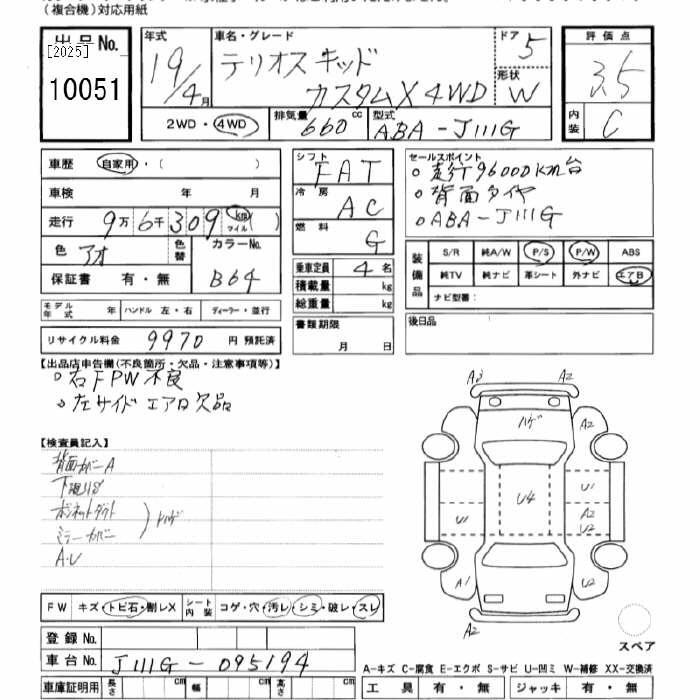 (複合機)対応用紙
出品No.
[2025]
10051
年式
19/4月
車名・グレード
テリオスキッド
カスタムX 4WD
ドア
5
形状
W
評価点
3.5
内装
C
2WD・4WD
排気量
660cc
型式
ABA-J111G
車歴 自家用・( )
車検 年 月
走行 9万6千309 km マイル ( )
色 アオ 色替
カラーNo.
B64
保証書 有・無
シフト
FAT
冷房
AC
燃料
G
乗車定員 4名
積載量 kg
総重量 kg
セールスポイント
○走行96000km台
○背面タイヤ
○ABA-J111G
装備品
S/R 純A/W P/S P/W ABS
純TV 純ナビ 革シート 外ナビ エアB
ナビ型番:
モデル年式 年 ハンドル 左・右 ディーラー・並行
書類期限
月 日
後日品
リサイクル料金 9970 円 預託済
【出品店申告欄(不良箇所・欠品・注意事項等)】
○右FPW不良
○左サイドエアロ欠品
【検査員記入】
背面カバーA
ボンネットダクト
ミラーカバー
ハゲ
A・U
A3 A2
ハゲ A2
U4
U1
U1
A2
U2
A1 U2
A2
スペア
FW キズ・トビ石・割レX シート内装 コゲ・穴・汚レ・シミ・破レ・スレ
登録No.
車台No. J111G-095194
車庫証明用 長さ cm 幅 cm 高さ cm
A-キズ C-腐食 E-エクボ S-サビ U-凹ミ W-補修 XX-交換済
工具 有・無 ジャッキ 有・無